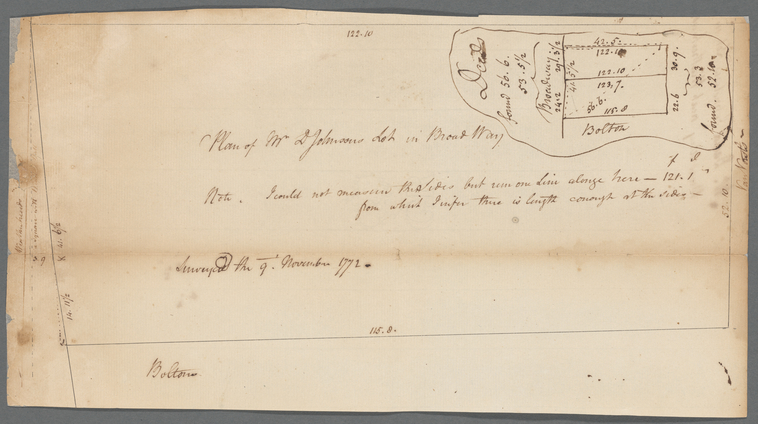 122.10
Deeds
found 56.6.
53.5 1/2
Broadway
24.2 29.3 1/2
42.5.
122.10
41.5 1/2
122.10
123.7.
56.6.
115.8
Bolton
30.9.
22.6
53.3
found. 52.10
Plan of Mr D Johnsons Lot in Broad Way
f I
Note. I could not measure the sides but run one Line alonge here — 121.1
from which I infer there is length enough at the sides —
52.10
Surveyed the 9th November 1772
X 41.6 1/2
14.11 1/2
115.8.
Boltons